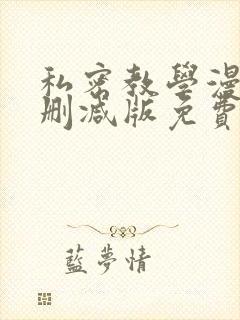 私密教學漫
刪減版免費
藍夢情